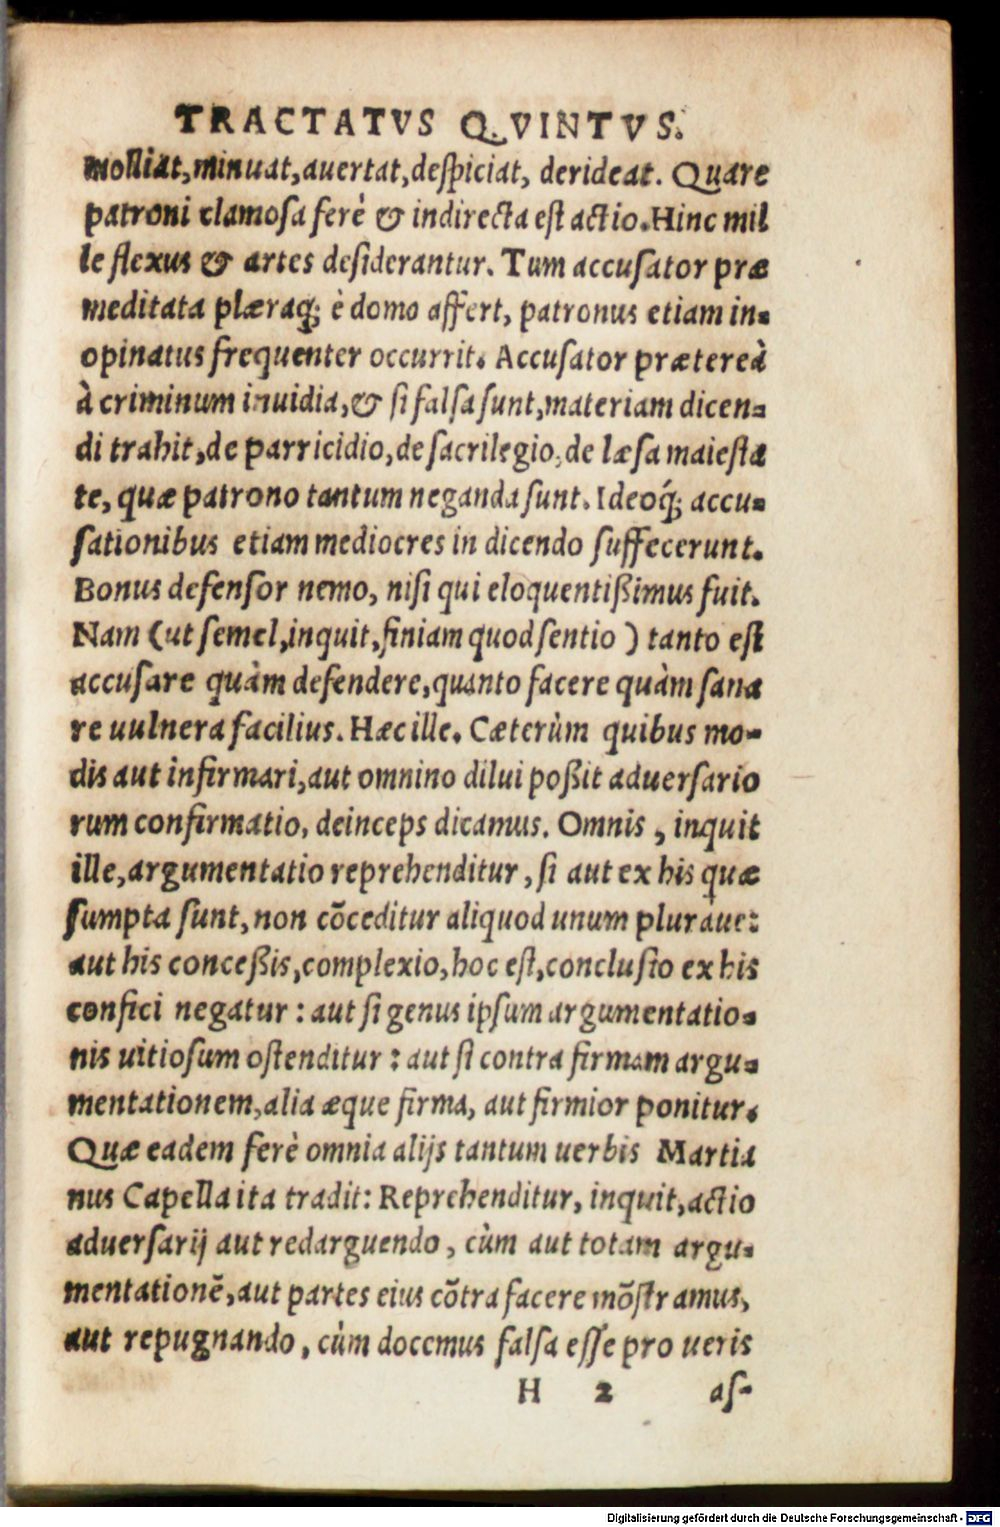 TRACTATVS QVINTVS.
molliat, minuat, auertat, despiciat, derideat. Quare
patroni clamosa ferè & indirecta est actio. Hinc mil
le flexus & artes desiderantur. Tum accusator præ
meditata plæraq; è domo affert, patronus etiam in-
opinatus frequenter occurrit. Accusator prætereà
à criminum inuidia, & si falsa sunt, materiam dicen-
di trahit, de parricidio, de sacrilegio, de læsa maiesta
te, quæ patrono tantum neganda sunt. Ideoq́; accu-
sationibus etiam mediocres in dicendo suffecerunt.
Bonus defensor nemo, nisi qui eloquentißimus fuit.
Nam (ut semel, inquit, finiam quod sentio) tanto est
accusare quàm defendere, quanto facere quàm sana
re uulnera facilius. Hæc ille. Cæterùm quibus mo-
dis aut infirmari, aut omnino dilui poßit aduersario
rum confirmatio, deinceps dicamus. Omnis, inquit
ille, argumentatio reprehenditur, si aut ex his quæ
sumpta sunt, non cōceditur aliquod unum pluraue:
aut his conceßis, complexio, hoc est, conclusio ex his
confici negatur: aut si genus ipsum argumentatio-
nis uitiosum ostenditur: aut si contra firmam argu-
mentationem, alia æque firma, aut firmior ponitur.
Quæ eadem ferè omnia alijs tantum uerbis Martia
nus Capella ita tradit: Reprehenditur, inquit, actio
aduersarij aut redarguendo, cùm aut totam argu-
mentationē, aut partes eius cōtra facere mōstramus,
aut repugnando, cùm docemus falsa esse pro ueris
H 2 as-
Digitalisierung gefördert durch die Deutsche Forschungsgemeinschaft - DFG